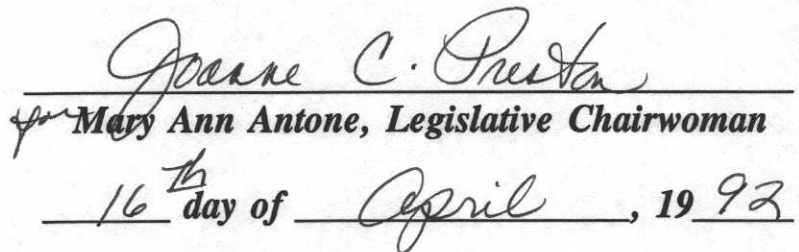 Joanne C. Preston
for Mary Ann Antone, Legislative Chairwoman
16th day of April, 1992